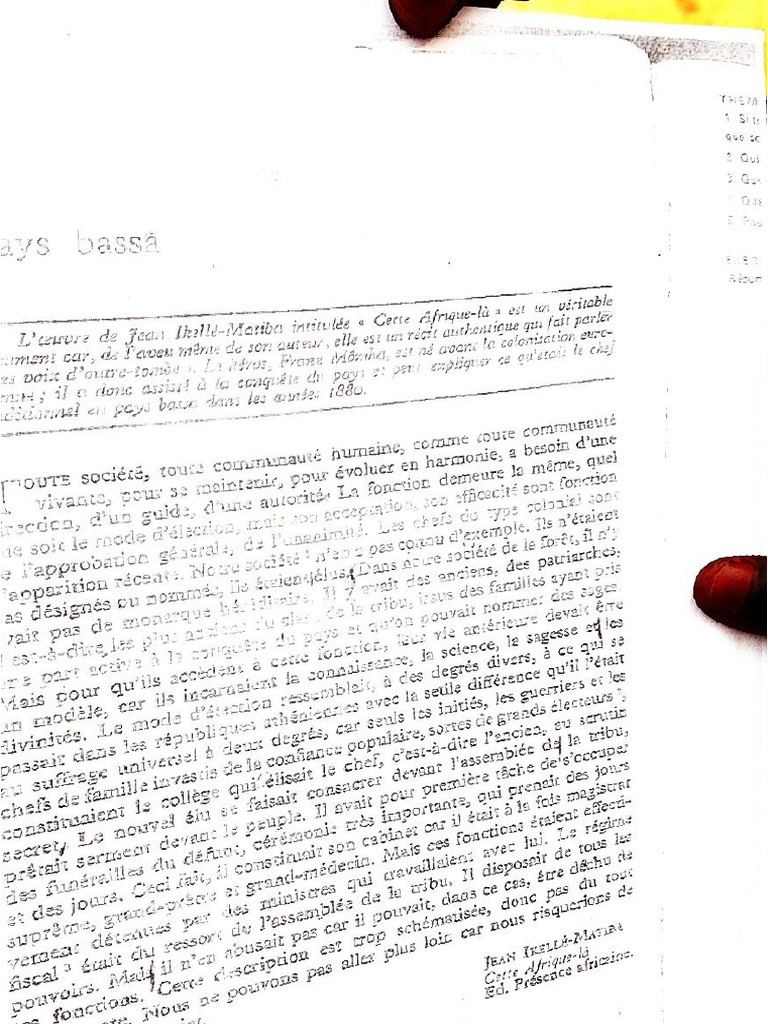 ays bassa
L'œuvre de Jean Ikellé-Matiba intitulée « Cette Afrique-là » est un véritable
ument car, de l'aveu même de son auteur, elle est un récit authentique qui fait parler
es voix d'outre-tombe ». Le héros, Franz Mômha, est né avant la colonisation euro-
enne ; il a donc assisté à la conquête du pays et peut expliquer ce qu'était le chef
aditionnel en pays bassa dans les années 1880.
TOUTE société, toute communauté humaine, comme toute communauté
vivante, pour se maintenir, pour évoluer en harmonie, a besoin d'une
irection, d'un guide, d'une autorité. La fonction demeure la même, quel
ue soit le mode d'élection, mais son acceptation, son efficacité sont fonction
e l'approbation générale, de l'unanimité. Les chefs du type colonial sont
'apparition récente. Notre société n'en a pas connu d'exemple. Ils n'étaient
as désignés ou nommés, ils étaient élus. Dans notre société de la forêt, il n'y
vait pas de monarque héréditaire. Il y avait des anciens, des patriarches,
'est-à-dire les plus anciens du clan, de la tribu, issus des familles ayant pris
ne part active à la conquête du pays et qu'on pouvait nommer des sages.
Mais pour qu'ils accèdent à cette fonction, leur vie antérieure devait être
un modèle, car ils incarnaient la connaissance, la science, la sagesse et les
divinités. Le mode d'élection ressemblait, à des degrés divers, à ce qui se
passait dans les républiques athéniennes avec la seule différence qu'il l'était
au suffrage universel à deux degrés, car seuls les initiés, les guerriers et les
chefs de famille investis de la confiance populaire, sortes de grands électeurs,
constituaient le collège qui élisait le chef, c'est-à-dire l'ancien, au scrutin
secret. Le nouvel élu se faisait consacrer devant l'assemblée de la tribu,
prêtait serment devant le peuple. Il avait pour première tâche de s'occuper
des funérailles du défunt, cérémonie très importante, qui prenait des jours
et des jours. Ceci fait, il constituait son cabinet car il était à la fois magistrat
suprême, grand-prêtre et grand-médecin. Mais ces fonctions étaient effecti-
vement détenues par des ministres qui travaillaient avec lui. Le régime
fiscal était du ressort de l'assemblée de la tribu. Il disposait de tous les
pouvoirs. Mais il n'en abusait pas car il pouvait, dans ce cas, être déchu de
es fonctions. Cette description est trop schématisée, donc pas du tout
Nous ne pouvons pas aller plus loin car nous risquerions de
JEAN IKELLÉ-MATIBA
Cette Afrique-là
Ed. Présence africaine.
THEM
1
que
2. Qui
3. Que
Que